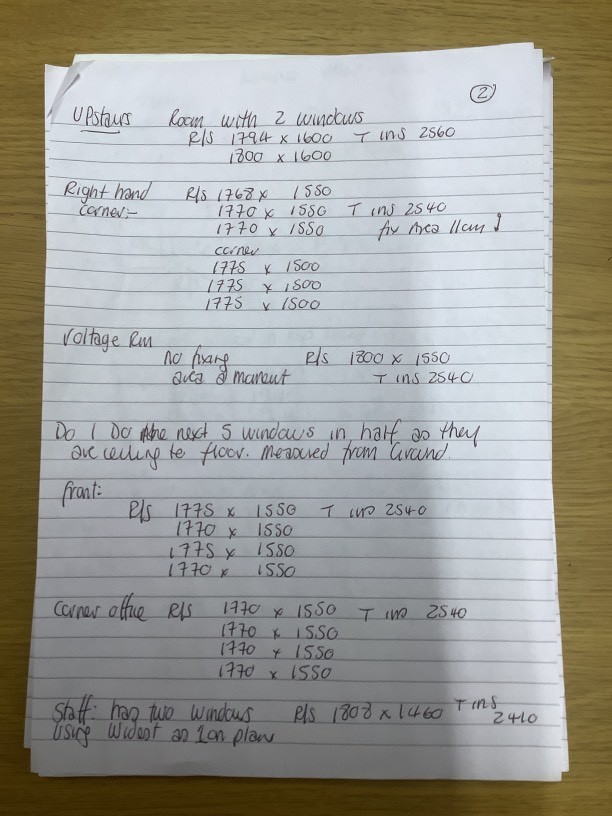 2
Upstairs Room with 2 windows
R/S 1794 x 1600 T ins 2560
1800 x 1600
Right hand R/S 1768 x 1550
corner:- 1770 x 1550 T ins 2540
1770 x 1550 fix Area 11cm
corner
1775 x 1500
1775 x 1500
1775 x 1500
Voltage Rm
no fixing R/S 1800 x 1550
area @ T ins 2540
Do I Do the next 5 windows in half as they
are ceiling to floor. Measured from Ground.
front:
R/S 1775 x 1550 T ins 2540
1770 x 1550
1775 x 1550
1770 x 1550
Corner office R/S 1770 x 1550 T ins 2540
1770 x 1550
1770 x 1550
1770 x 1550
Staff: has two windows R/S 1808 x 1460 T ins
2410
Using Widest as 1 on plan